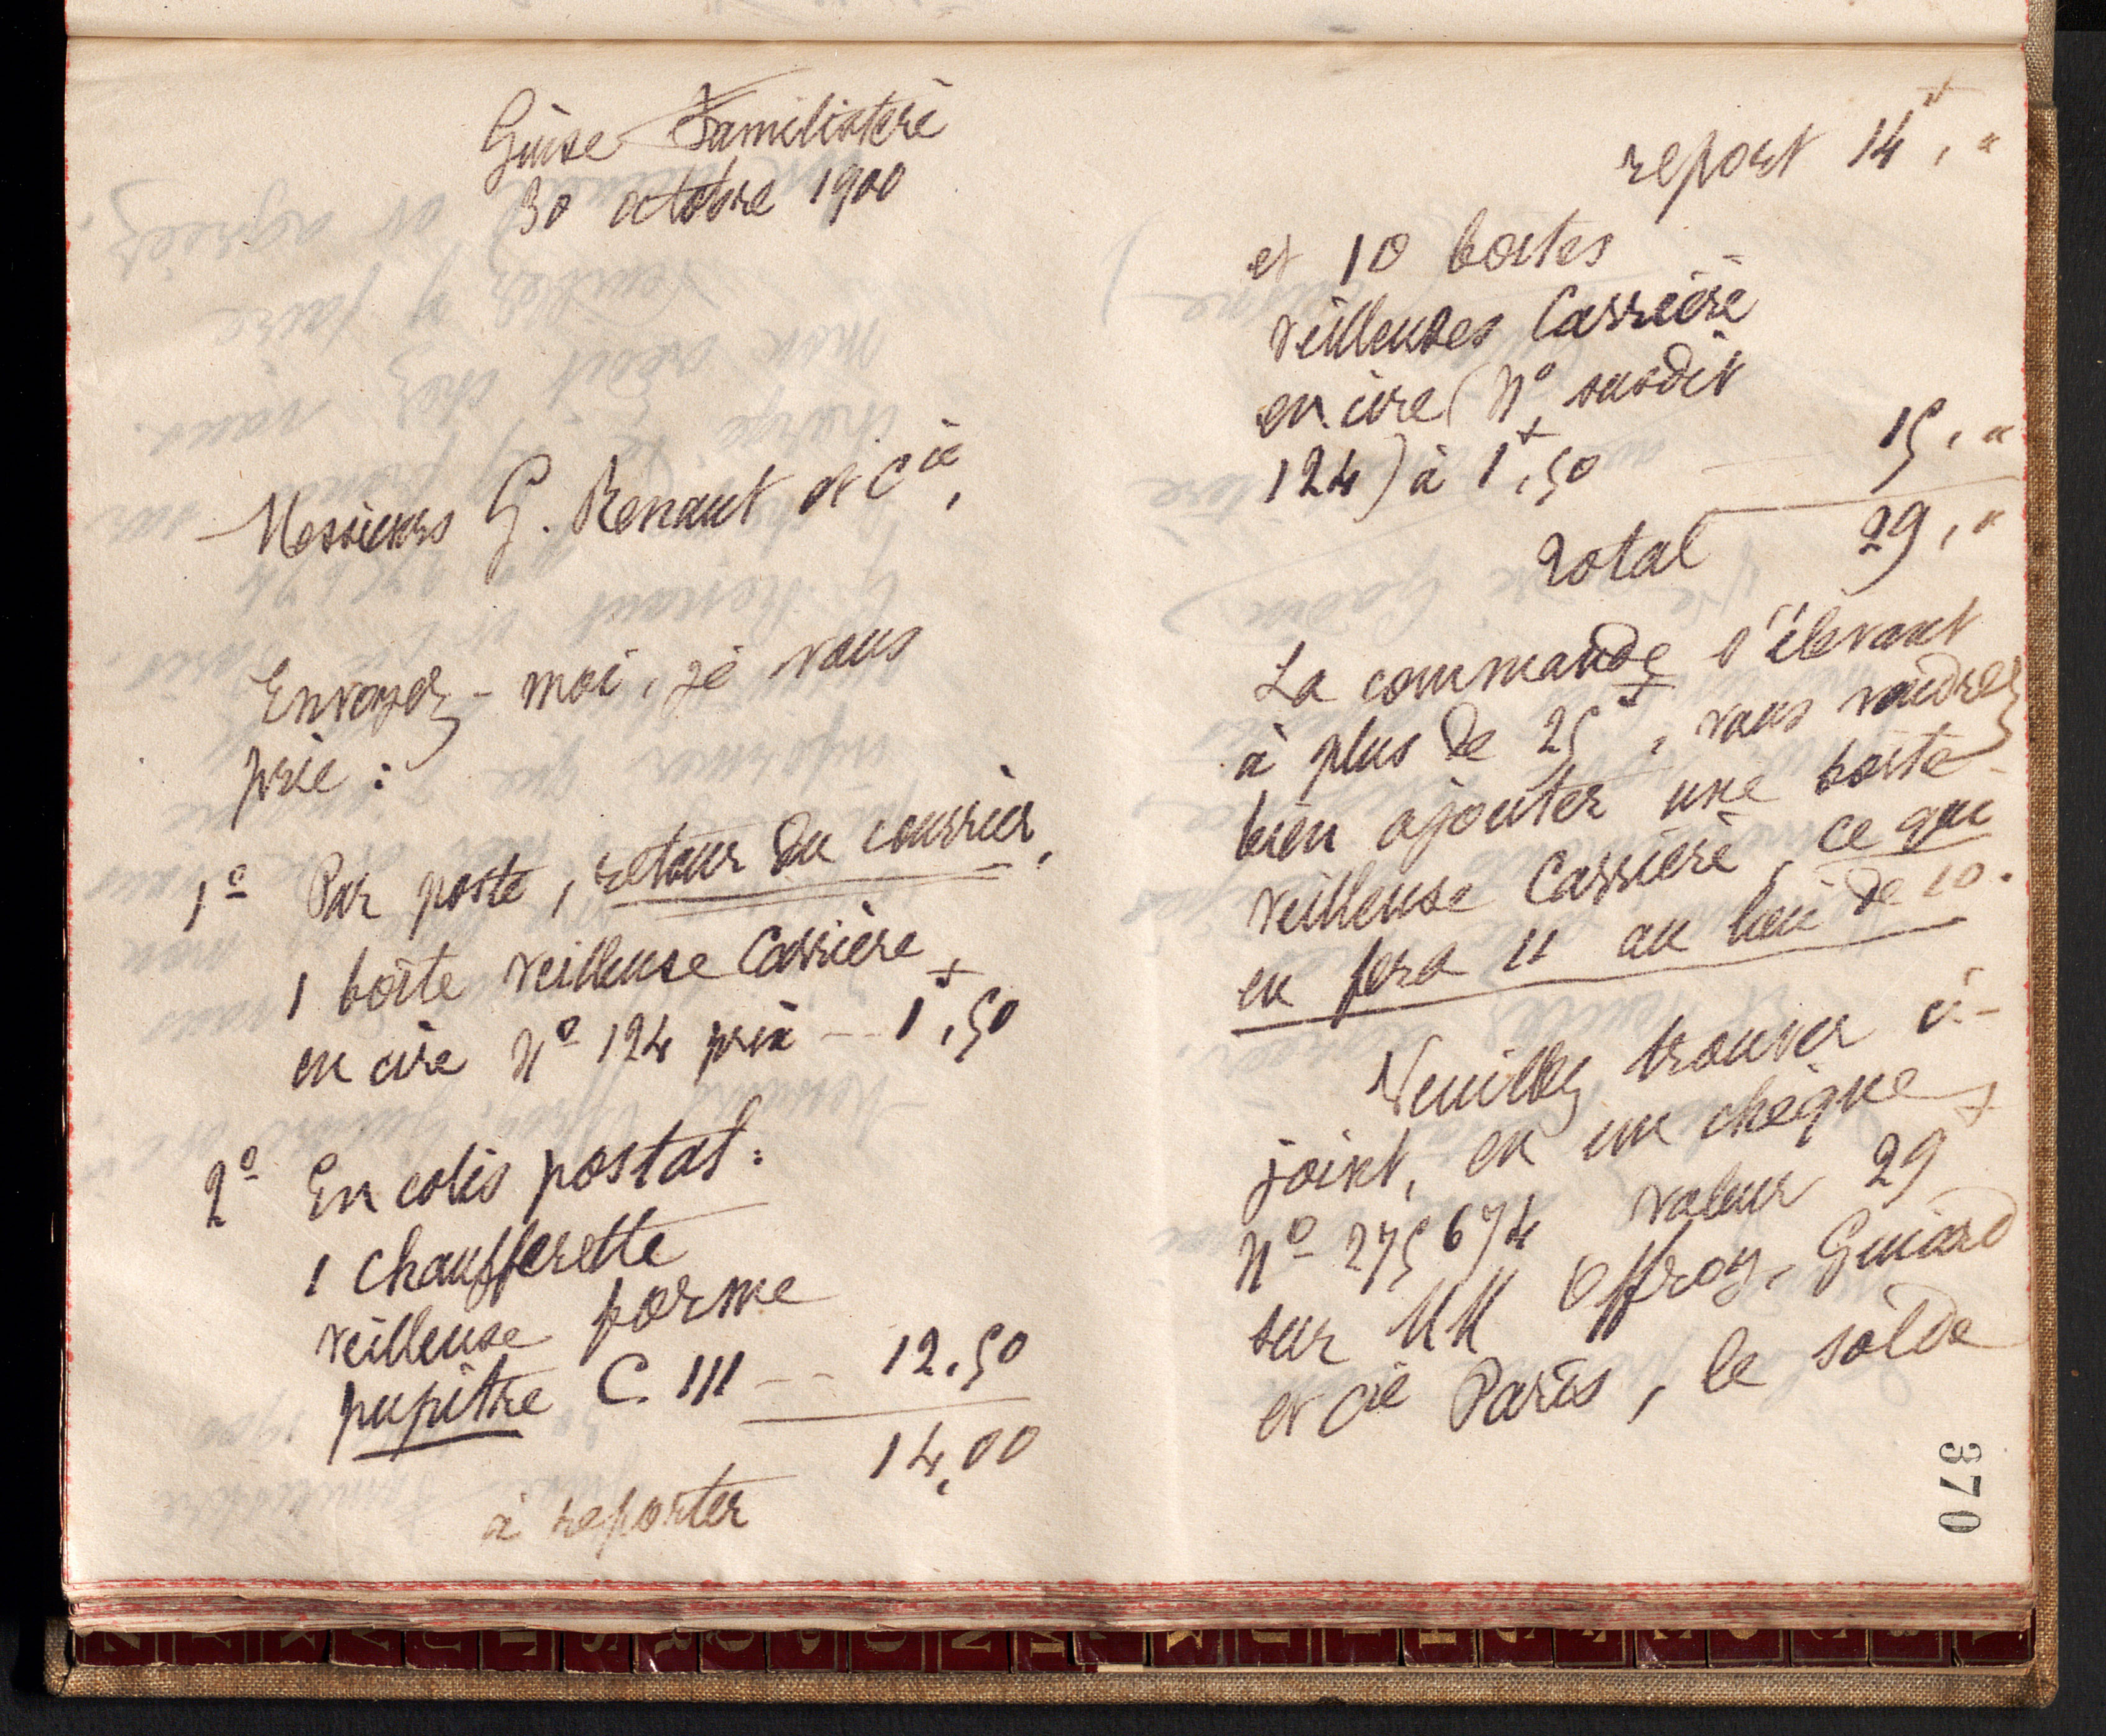 Guise Familistère
30 octobre 1900
Messieurs G. Renaut et Cie,
Envoyez-moi, je vous
prie :
1º Par poste, retour du courrier,
1 boîte veilleuse Carrière
en cire Nº 124 prix -- 1f,50
2º En colis postal :
1 chaufferette
veilleuse forme
pupitre C. III -- 12.50
14,00
à reporter
report 14f, "
et 10 boîtes
veilleuses Carrière
en cire (Nº susdit
124) à 1f,50 15, "
Total 29, "
La commande s'élevant
à plus de 25f, vous voudrez
bien ajouter une boîte
veilleuse Carrière, ce qui
en fera 11 au lieu de 10.
Veuillez trouver ci-
joint, en un chèque
Nº 275674 valeur 29f
sur MM Offroy, Guiard
et Cie Paris, le solde
370
Z Y X V U T S R Q O N M